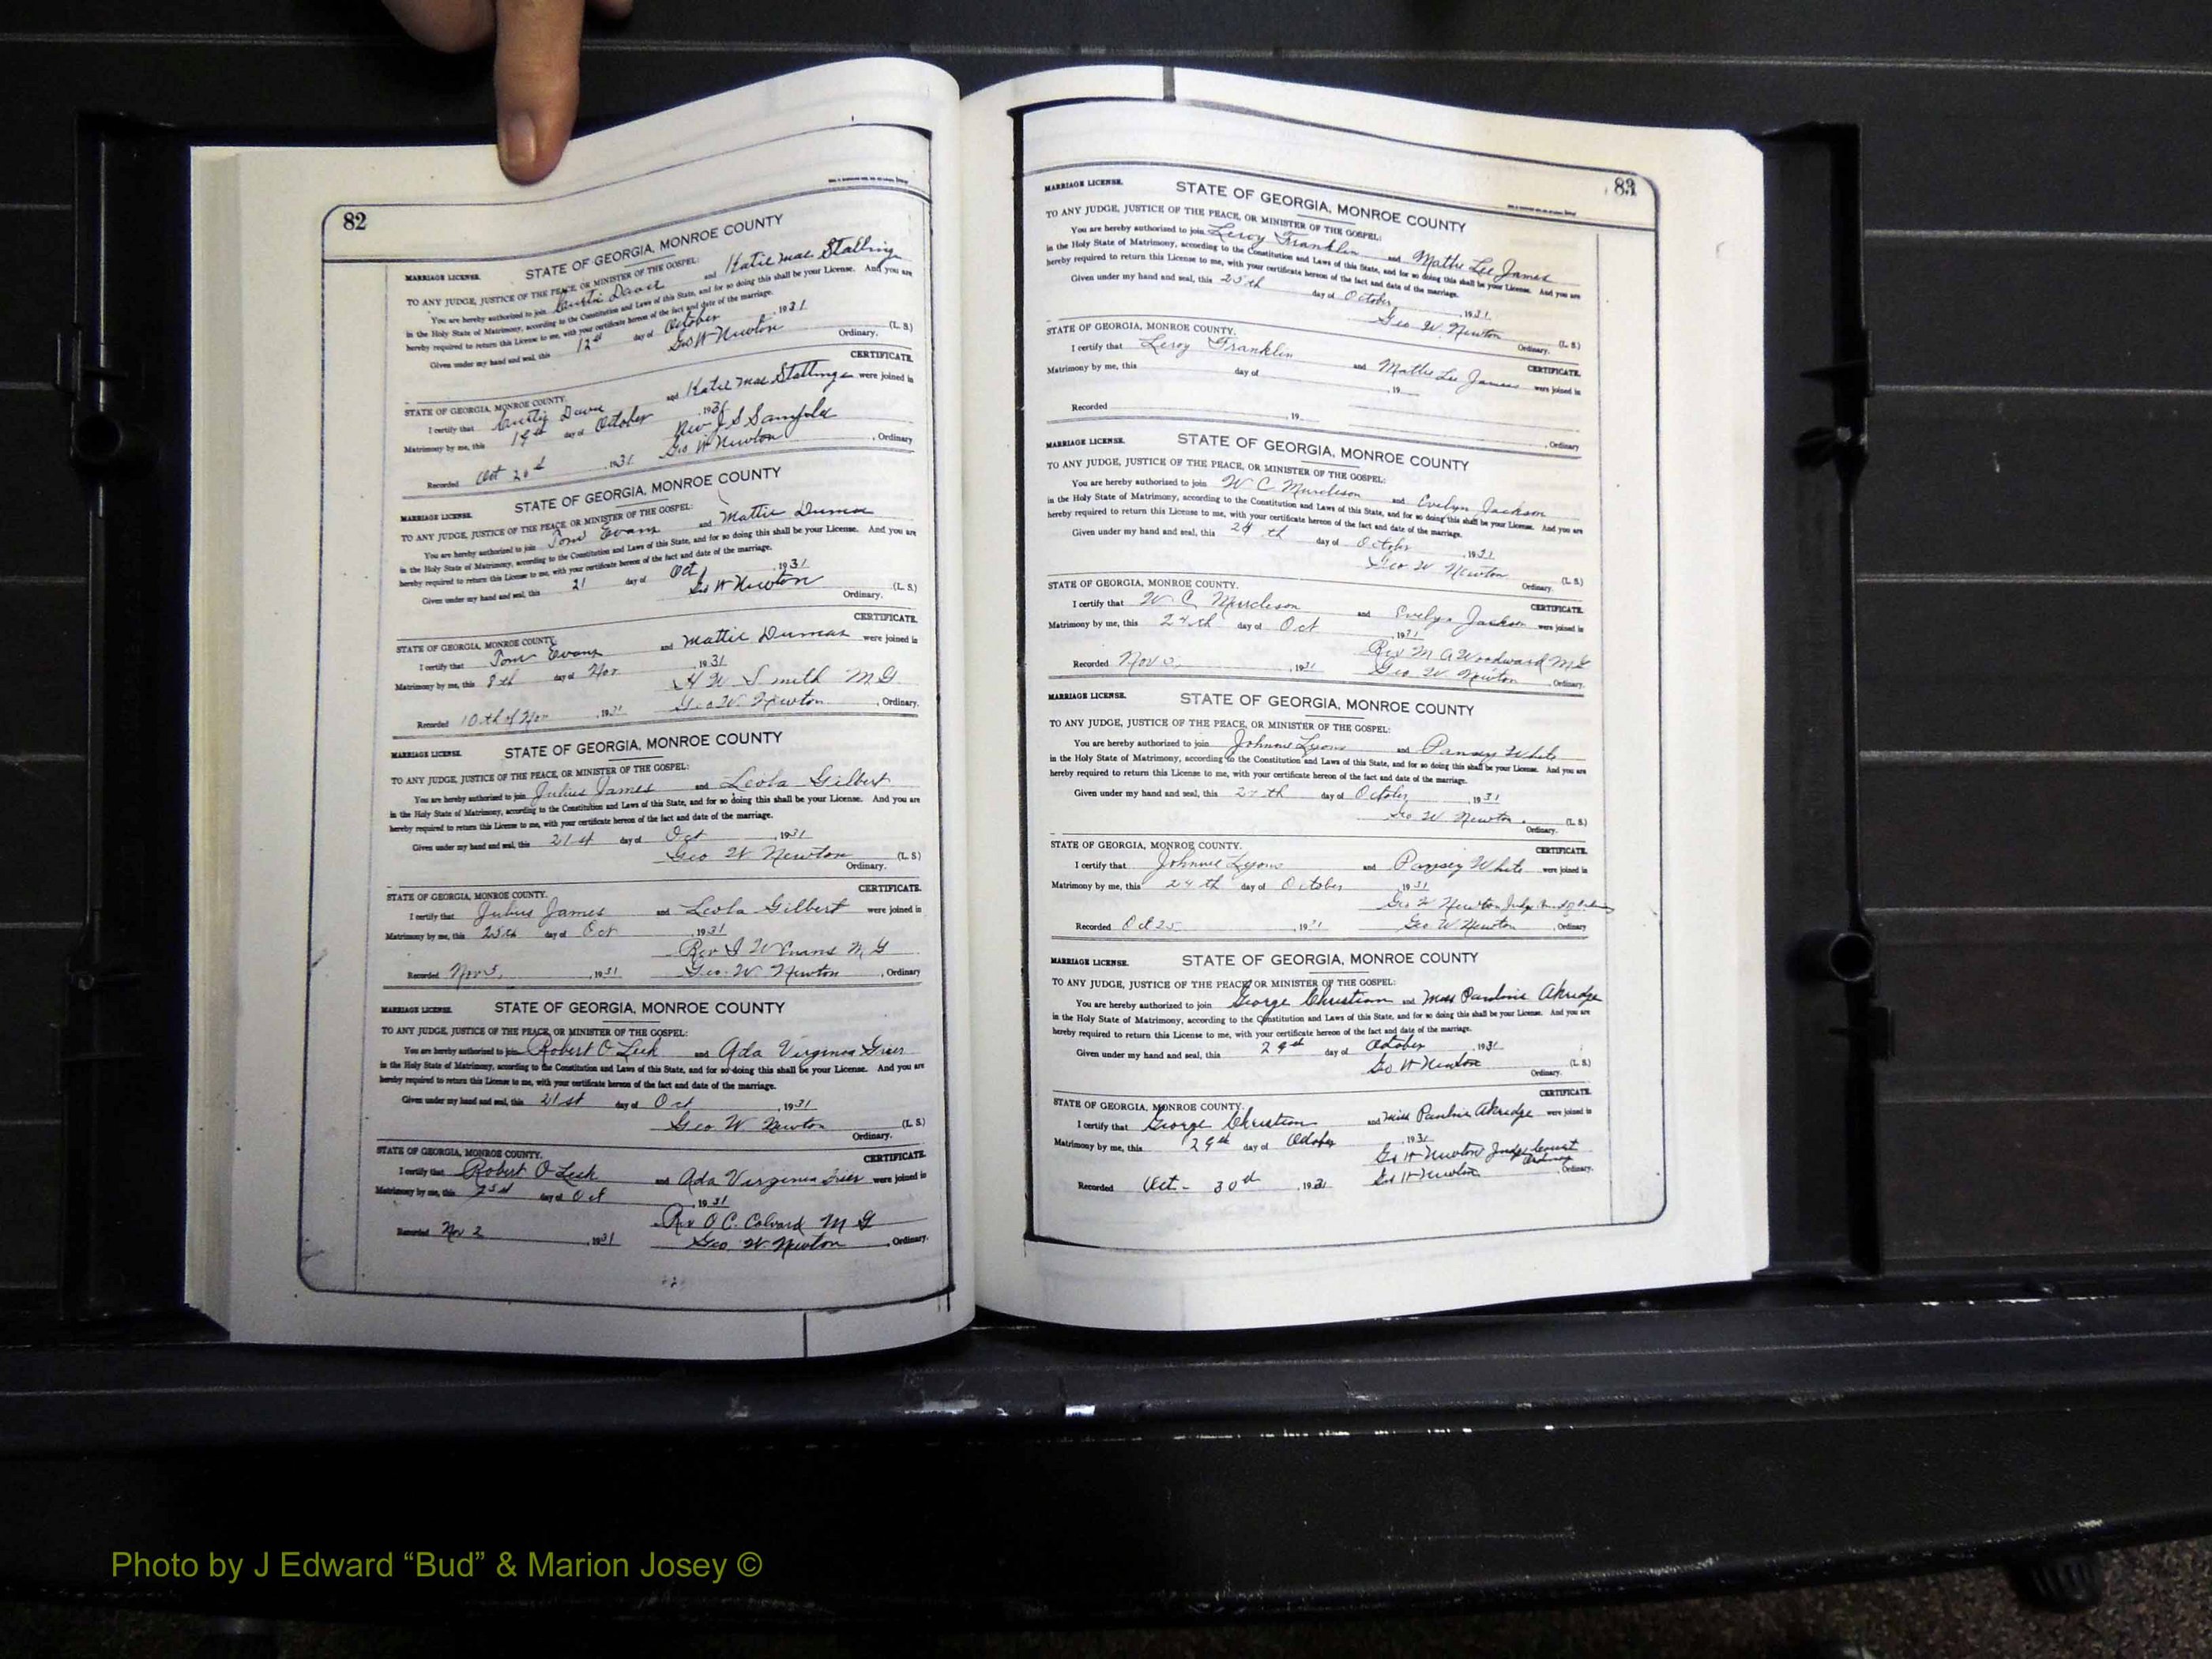 82
MARRIAGE LICENSE. STATE OF GEORGIA, MONROE COUNTY
TO ANY JUDGE, JUSTICE OF THE PEACE, OR MINISTER OF THE GOSPEL:
You are hereby authorized to join Davis and Katie Mae Stallings
in the Holy State of Matrimony, according to the Constitution and Laws of this State, and for so doing this shall be your License. And you are
hereby required to return this License to me, with your certificate hereon of the fact and date of the marriage.
Given under my hand and seal, this 12th day of October, 1931
Geo W Newton (L. S.)
Ordinary.
CERTIFICATE.
STATE OF GEORGIA, MONROE COUNTY.
I certify that Davis and Katie Mae Stallings were joined in
Matrimony by me, this day of October, 1931
Rev J S Sampler
Recorded Oct 1931 Geo W Newton, Ordinary
MARRIAGE LICENSE. STATE OF GEORGIA, MONROE COUNTY
TO ANY JUDGE, JUSTICE OF THE PEACE, OR MINISTER OF THE GOSPEL:
You are hereby authorized to join Tom Evans and Mattie Dumas
in the Holy State of Matrimony, according to the Constitution and Laws of this State, and for so doing this shall be your License. And you are
hereby required to return this License to me, with your certificate hereon of the fact and date of the marriage.
Given under my hand and seal, this 21 day of Oct, 1931
Geo W Newton (L. S.)
Ordinary.
CERTIFICATE.
STATE OF GEORGIA, MONROE COUNTY.
I certify that Tom Evans and Mattie Dumas were joined in
Matrimony by me, this 8th day of Nov, 1931
H W Smith M G
Recorded 10th of Nov, 1931 Geo W. Newton, Ordinary.
MARRIAGE LICENSE. STATE OF GEORGIA, MONROE COUNTY
TO ANY JUDGE, JUSTICE OF THE PEACE, OR MINISTER OF THE GOSPEL:
You are hereby authorized to join Julius James and Leola Gilbert
in the Holy State of Matrimony, according to the Constitution and Laws of this State, and for so doing this shall be your License. And you are
hereby required to return this License to me, with your certificate hereon of the fact and date of the marriage.
Given under my hand and seal, this 21st day of Oct, 1931
Geo W. Newton (L. S.)
Ordinary.
CERTIFICATE.
STATE OF GEORGIA, MONROE COUNTY.
I certify that Julius James and Leola Gilbert were joined in
Matrimony by me, this 25th day of Oct, 1931
Rev I W Evans M G
Recorded Nov 5, 1931 Geo. W. Newton, Ordinary
MARRIAGE LICENSE. STATE OF GEORGIA, MONROE COUNTY
TO ANY JUDGE, JUSTICE OF THE PEACE, OR MINISTER OF THE GOSPEL:
You are hereby authorized to join Robert O Leek and Ada Virginia Grier
in the Holy State of Matrimony, according to the Constitution and Laws of this State, and for so doing this shall be your License. And you are
hereby required to return this License to me, with your certificate hereon of the fact and date of the marriage.
Given under my hand and seal, this 21st day of Oct, 1931
Geo W. Newton (L. S.)
Ordinary.
STATE OF GEORGIA, MONROE COUNTY. CERTIFICATE.
I certify that Robert O Leek and Ada Virginia Grier were joined in
Matrimony by me, this day of Oct, 1931
Rev O C. Calvard M G
Recorded Nov 2, 1931 Geo. W. Newton, Ordinary.
83
MARRIAGE LICENSE. STATE OF GEORGIA, MONROE COUNTY
TO ANY JUDGE, JUSTICE OF THE PEACE, OR MINISTER OF THE GOSPEL:
You are hereby authorized to join Leroy Franklin and Mattie Lee James
in the Holy State of Matrimony, according to the Constitution and Laws of this State, and for so doing this shall be your License. And you are
hereby required to return this License to me, with your certificate hereon of the fact and date of the marriage.
Given under my hand and seal, this 25th day of October, 1931
Geo W. Newton (L. S.)
Ordinary.
STATE OF GEORGIA, MONROE COUNTY. CERTIFICATE.
I certify that Leroy Franklin and Mattie Lee James were joined in
Matrimony by me, this day of, 19
Recorded, 19, Ordinary
MARRIAGE LICENSE. STATE OF GEORGIA, MONROE COUNTY
TO ANY JUDGE, JUSTICE OF THE PEACE, OR MINISTER OF THE GOSPEL:
You are hereby authorized to join W C Murcheson and Evelyn Jackson
in the Holy State of Matrimony, according to the Constitution and Laws of this State, and for so doing this shall be your License. And you are
hereby required to return this License to me, with your certificate hereon of the fact and date of the marriage.
Given under my hand and seal, this 24th day of October, 1931
Geo. W. Newton (L. S.)
Ordinary.
STATE OF GEORGIA, MONROE COUNTY. CERTIFICATE.
I certify that W. C. Murcheson and Evelyn Jackson were joined in
Matrimony by me, this 24th day of Oct, 1931
Rev M A Woodward M G
Recorded Nov 5, 1931 Geo. W. Newton, Ordinary.
MARRIAGE LICENSE. STATE OF GEORGIA, MONROE COUNTY
TO ANY JUDGE, JUSTICE OF THE PEACE, OR MINISTER OF THE GOSPEL:
You are hereby authorized to join Johnnie Lyons and Pansey White
in the Holy State of Matrimony, according to the Constitution and Laws of this State, and for so doing this shall be your License. And you are
hereby required to return this License to me, with your certificate hereon of the fact and date of the marriage.
Given under my hand and seal, this day of October, 1931
Geo. W. Newton. (L. S.)
Ordinary.
STATE OF GEORGIA, MONROE COUNTY. CERTIFICATE.
I certify that Johnnie Lyons and Pansey White were joined in
Matrimony by me, this 24th day of October, 1931
Geo W Newton Judge
Recorded Oct 25, 1931 Geo W. Newton, Ordinary
MARRIAGE LICENSE. STATE OF GEORGIA, MONROE COUNTY
TO ANY JUDGE, JUSTICE OF THE PEACE, OR MINISTER OF THE GOSPEL:
You are hereby authorized to join George Christian and Miss Pauline Akridge
in the Holy State of Matrimony, according to the Constitution and Laws of this State, and for so doing this shall be your License. And you are
hereby required to return this License to me, with your certificate hereon of the fact and date of the marriage.
Given under my hand and seal, this 29th day of October, 1931
Geo W Newton (L. S.)
Ordinary.
CERTIFICATE.
STATE OF GEORGIA, MONROE COUNTY.
I certify that George Christian and Miss Pauline Akridge were joined in
Matrimony by me, this 29th day of October, 1931
Geo W Newton Judge Court Ordinary
Recorded Oct - 30th, 1931 Geo W Newton, Ordinary.
Photo by J Edward “Bud” & Marion Josey ©